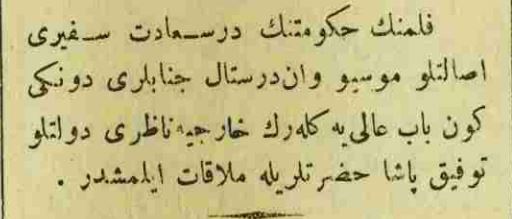 فلمنك حكومتنك درسعادت سفيرى
اصالتلو موسيو وان‌درستال جنابلرى دونكى
كون باب عالى‌يه كله‌رك خارجيه ناظرى دولتلو
توفيق پاشا حضرتلريله ملاقات ايلمشدر .